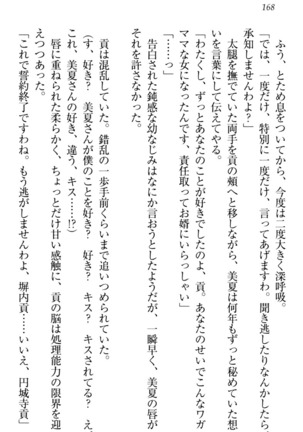 168
ふう、とため息をついてから、今度は二度大きく深呼吸。
「では、一度だけ、特別に一度だけ、言って差し上げますわ。聞き逃したりなんかしたら、
承知しませんわよ？」
太腿を撫でていた両手を貢の頬へと移しながら、美夏は何年もずっと秘めていた想
いを言葉にして伝えてやる。
「わたくし、ずっとあなたのことが好きでしたのよ、貢。あなたのせいでこんなワガ
ママな女になったんですのよ、責任取ってお婿にいらっしゃい」
「……っ」
告白された鈍感な幼なじみはなにか言おうとしたようだが、一瞬早く、美夏の唇が
それを許さなかった。
貢は混乱していた。錯乱の一歩手前くらいまで追いつめられていた。
（す、好き？　美夏さんが僕のことを好き？　好き？　キス？　キスされてる？
好き、美夏さんの好き、違う、キス……⁉）
唇に重ねられた柔らかく、ちょっとだけ甘い感触に、貢の脳は処理能力の限界を迎
えつつあった。
「これで誓約終了ですわね。もう逃がしませんわよ、堀内貢……いいえ、円城寺貢」